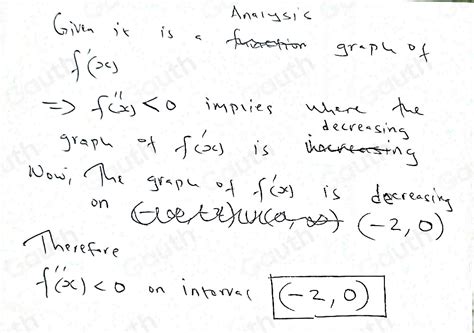 Analysis
Given it is a function graph of
f'(x)
=> f''(x) < 0 implies where the
decreasing
graph of f'(x) is increasing
Now, The graph of f'(x) is decreasing
on (-2, 0)
Therefore
f''(x) < 0 on interval (-2, 0)